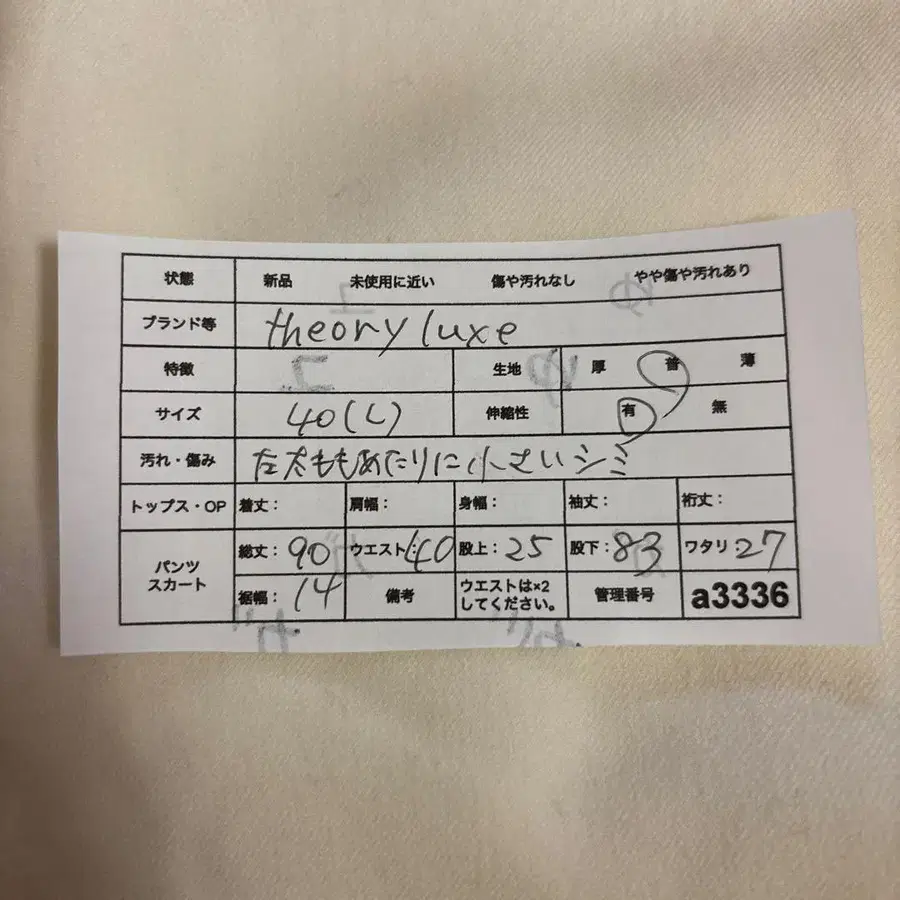 状態 新品 未使用に近い 傷や汚れなし やや傷や汚れあり
ブランド等 theory luxe
特徴 生地 厚 普 薄
サイズ 40(L) 伸縮性 有 無
汚れ・傷み 左太ももあたりに小さいシミ
トップス・OP 着丈: 肩幅: 身幅: 袖丈: 裄丈:
パンツ スカート 総丈: 90 ウエスト: 40 股上: 25 股下: 83 ワタリ: 27
裾幅: 14 備考 ウエストは×2 してください。 管理番号 a3336